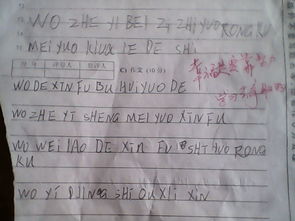 WO ZHE YI BEI ZI ZHI YUO RONG KU
MEI YUO KUA IE DE SHI
C) 作文 (10 分)
幸福是要靠努力
WO DE XIN FU BU HUI YUO DE
WO ZHE YI SHENG MEI YUO XIN FU
WO WEI LAO DE XIN FU SHI YUO RONG
KU
WO YI DING SHI OU XII XIN